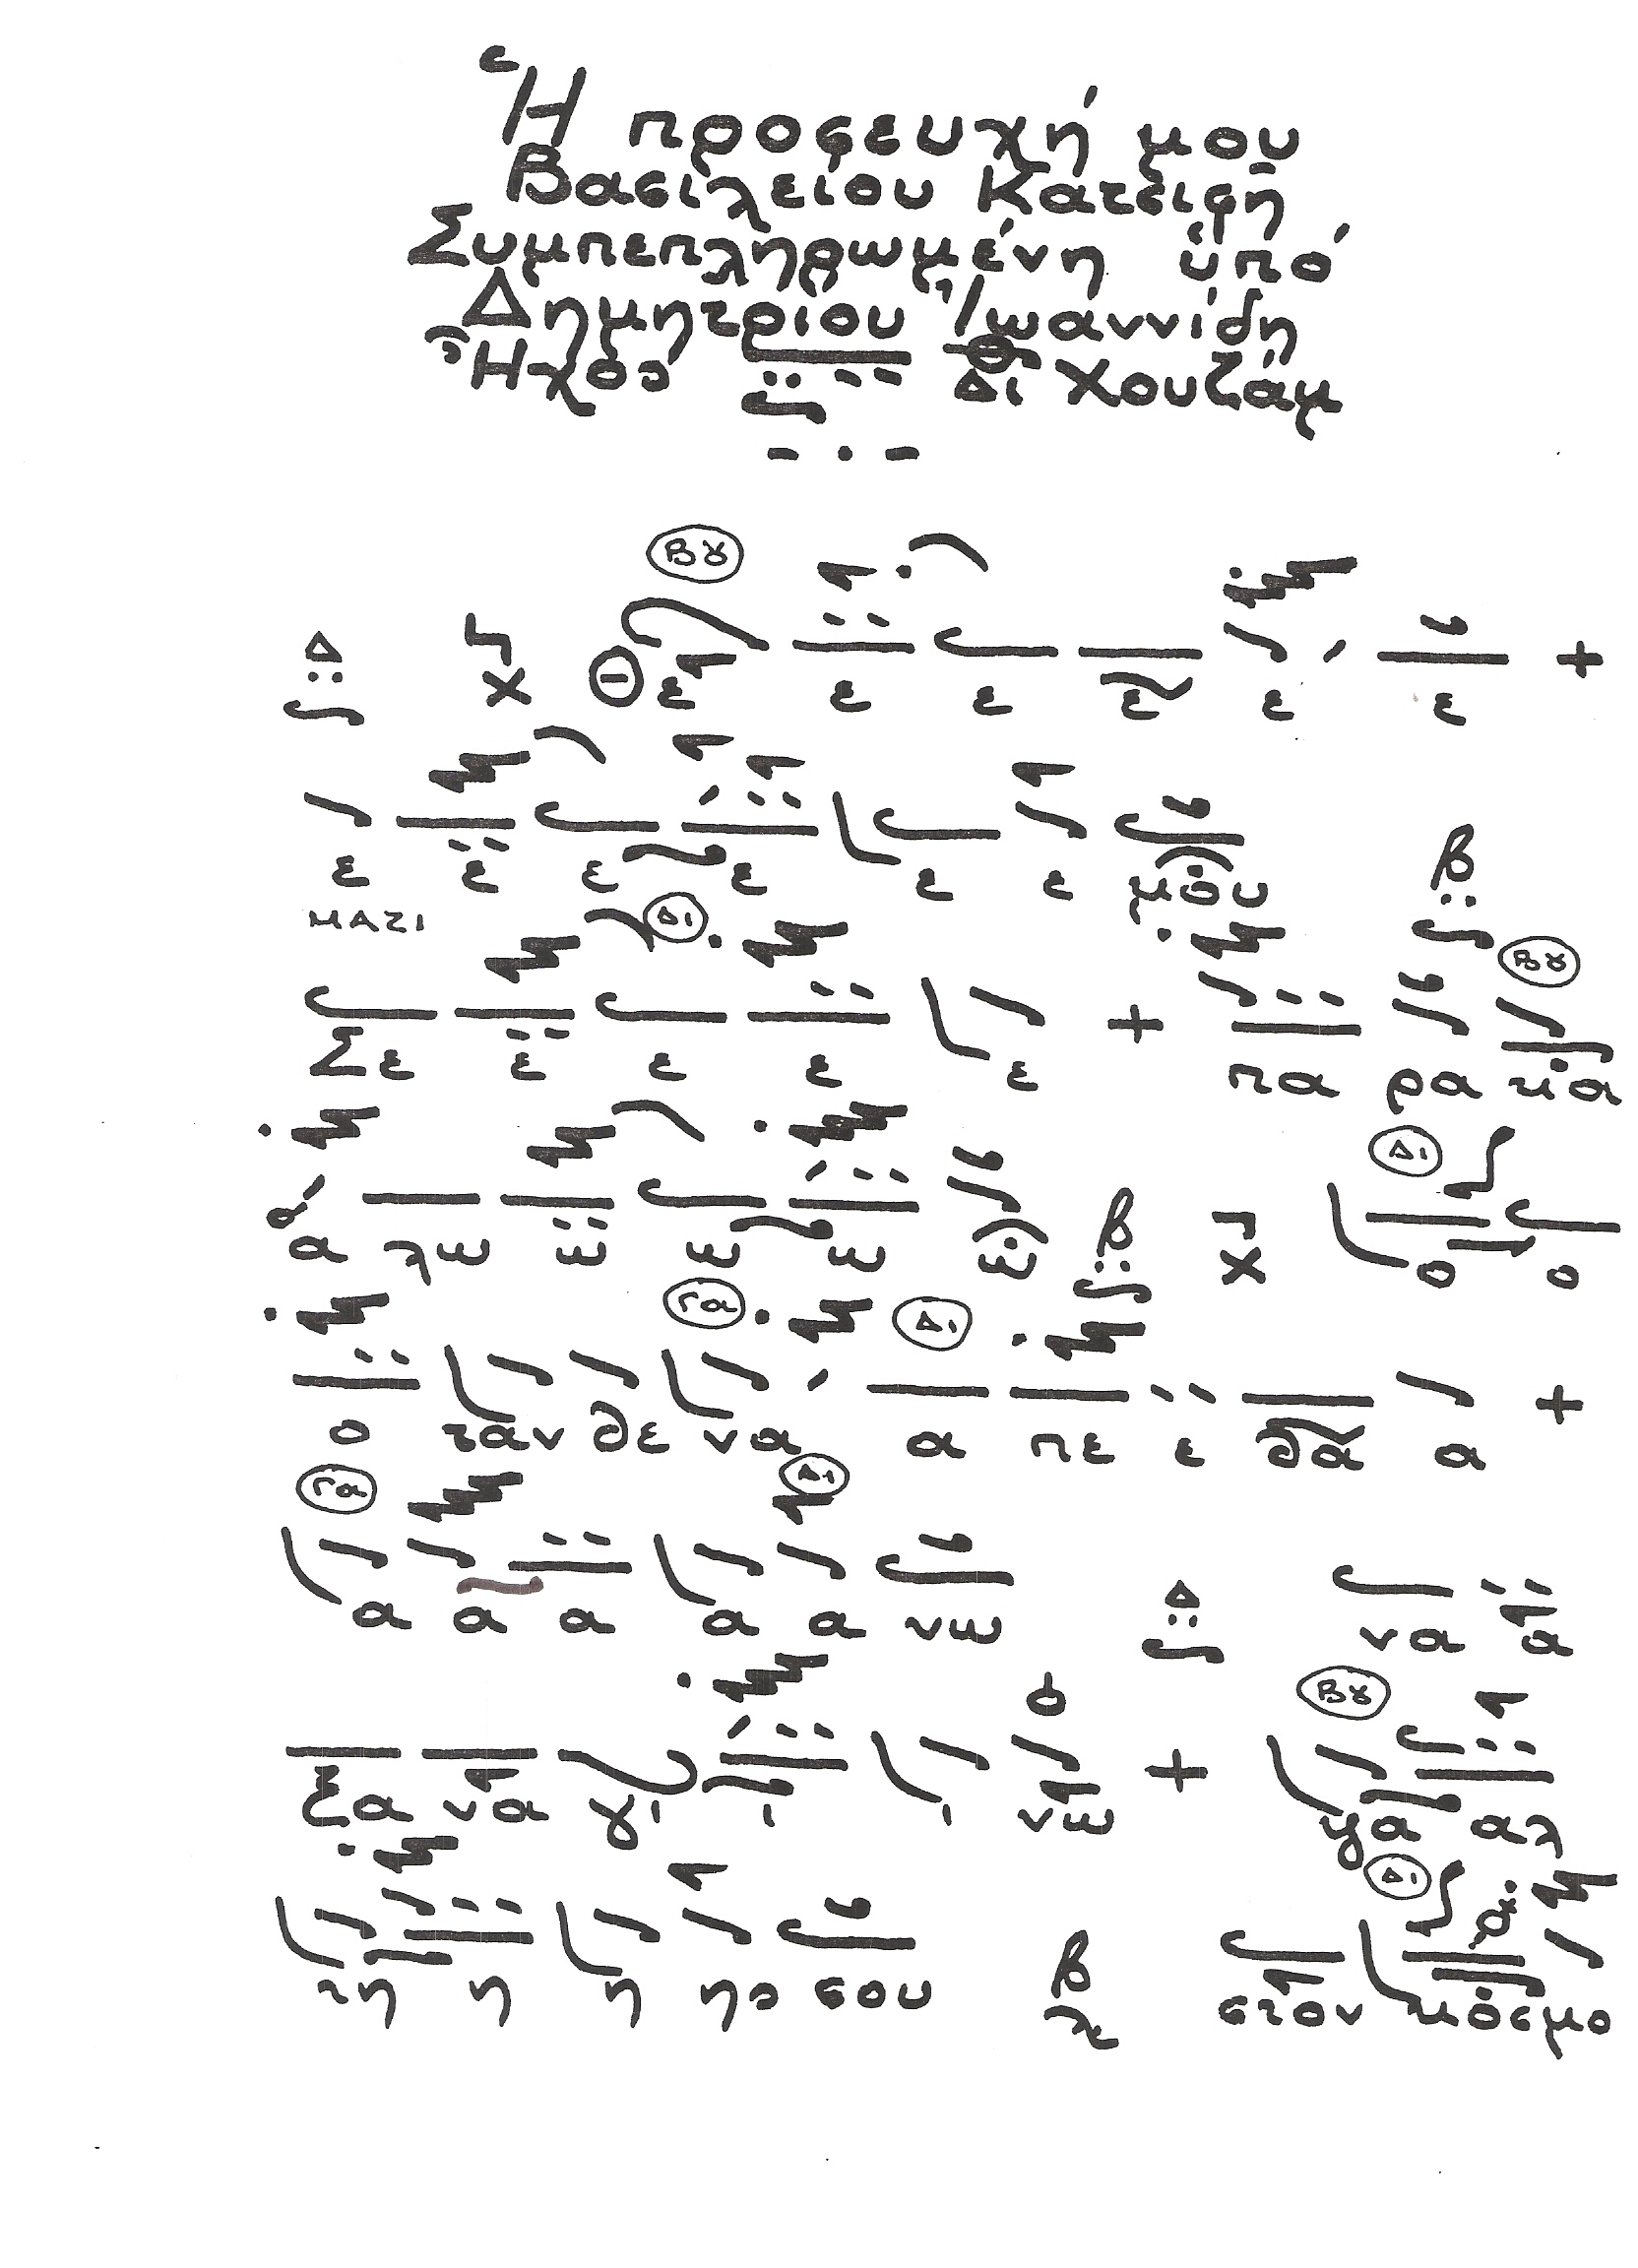 Ἡ προσευχή μου
Βασιλείου Κατσιφῆ
Συμπεπληρωμένη ὑπό
Δημητρίου Ἰωαννίδη
Ἦχος Δι Χουζάμ
Βȣ
Δ Χ Θ ε ε ε ε ε ε
ε ε ε ε ε ε μου β
ΜΑΖΙ Δι
Βȣ
Σε ε ε ε ε πα ρα κα
Δι
α λω ω ω ω ω β Χ ο ο
Γα Δι
ο ταν θε να α πε ε θα α
Γα Δι
α α α α α νω Δ να α
Βȣ
ξα να γι ι ι νω γα αλ
Δι
τη η η ης σου β στον κόσμο